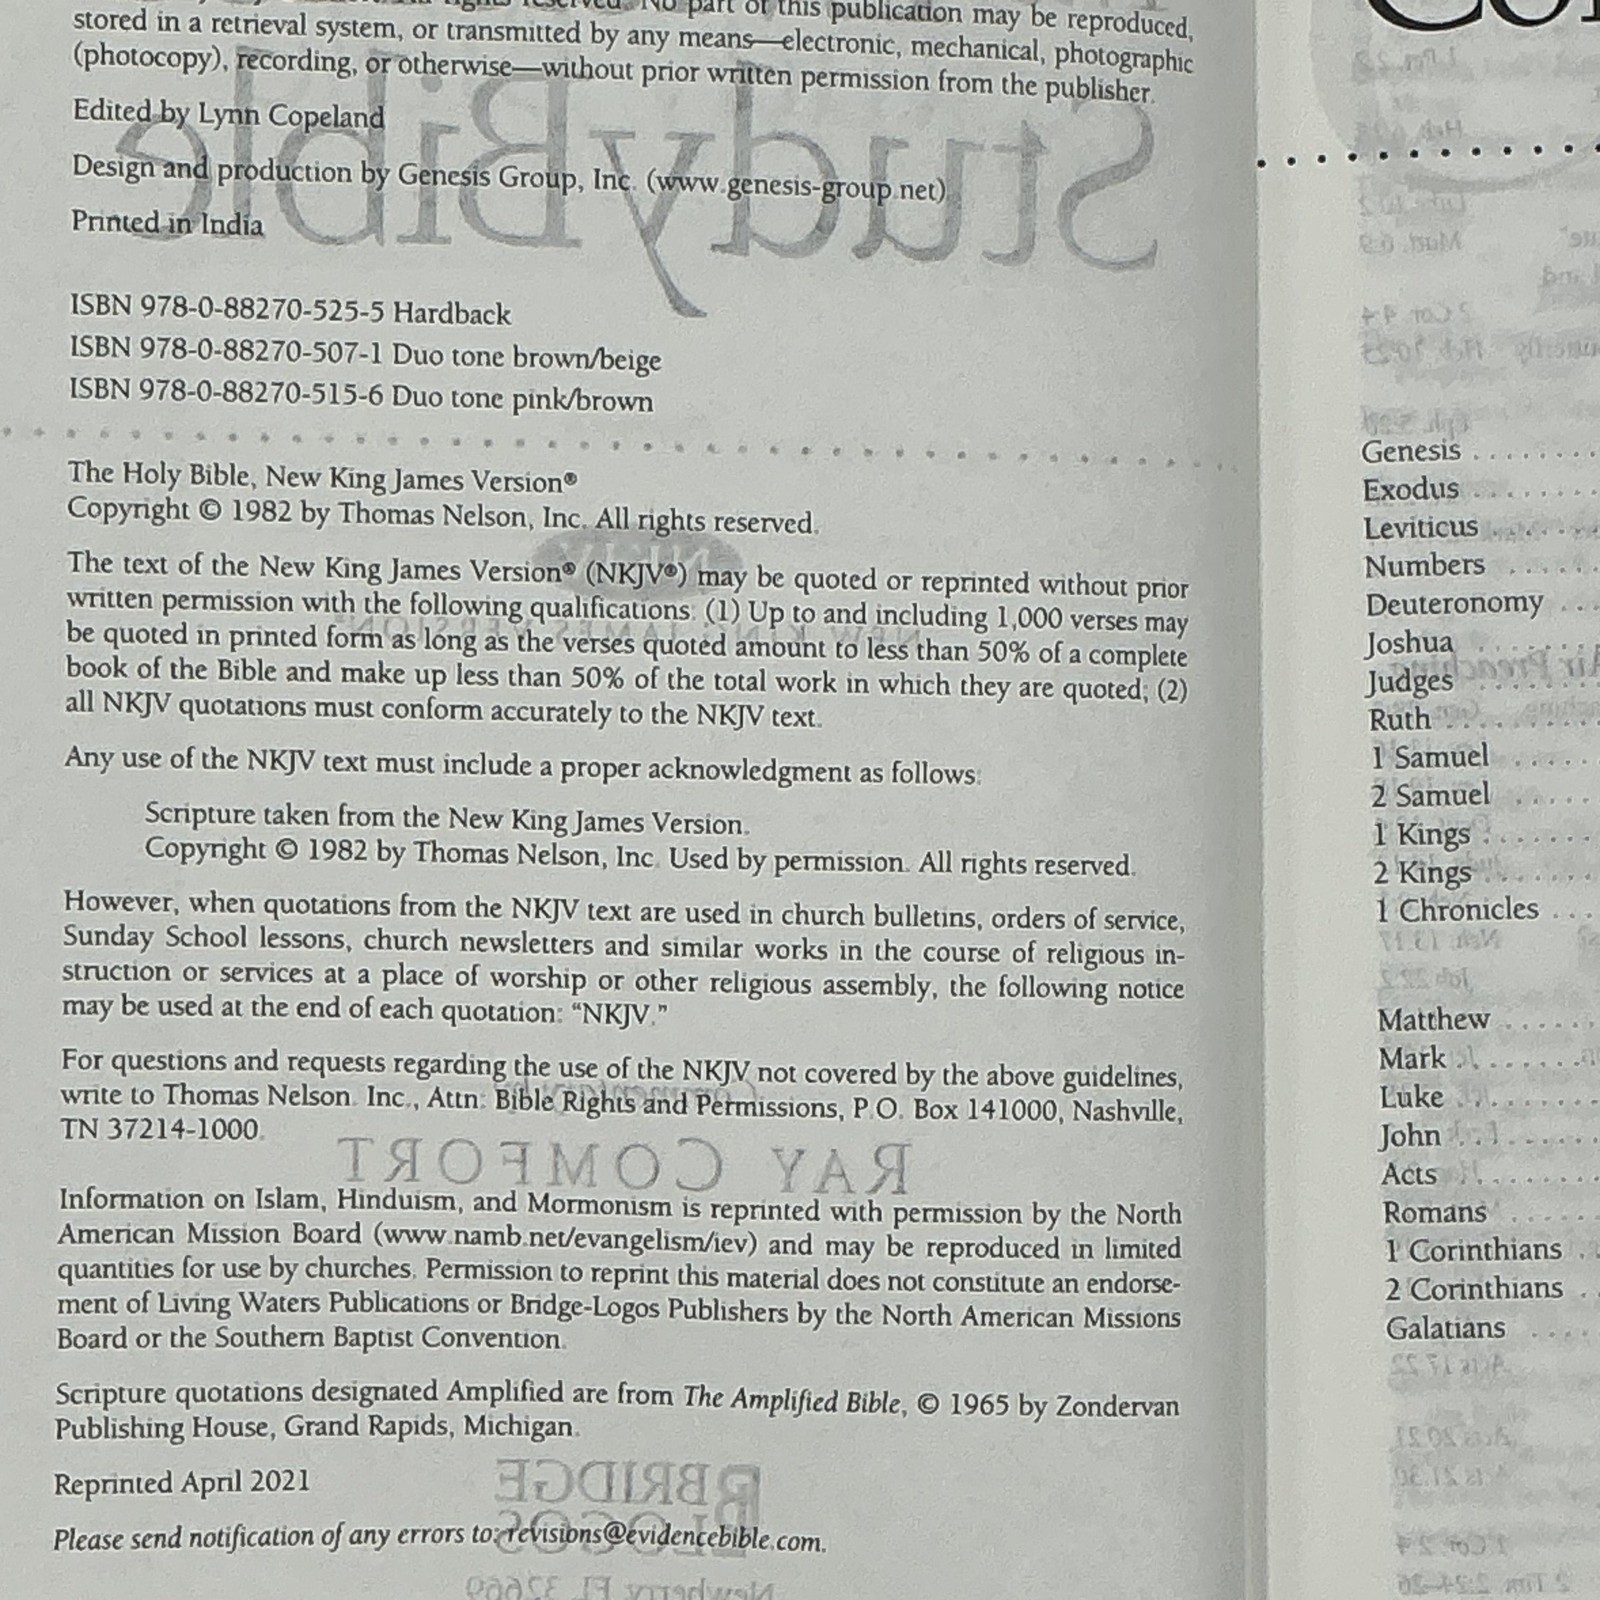 reserved. No part of this publication may be reproduced,
stored in a retrieval system, or transmitted by any means—electronic, mechanical, photographic
(photocopy), recording, or otherwise—without prior written permission from the publisher.
Edited by Lynn Copeland
Design and production by Genesis Group, Inc. (www.genesis-group.net)
Printed in India
ISBN 978-0-88270-525-5 Hardback
ISBN 978-0-88270-507-1 Duo tone brown/beige
ISBN 978-0-88270-515-6 Duo tone pink/brown
The Holy Bible, New King James Version®
Copyright © 1982 by Thomas Nelson, Inc. All rights reserved.
The text of the New King James Version® (NKJV®) may be quoted or reprinted without prior
written permission with the following qualifications: (1) Up to and including 1,000 verses may
be quoted in printed form as long as the verses quoted amount to less than 50% of a complete
book of the Bible and make up less than 50% of the total work in which they are quoted; (2)
all NKJV quotations must conform accurately to the NKJV text.
Any use of the NKJV text must include a proper acknowledgment as follows:
Scripture taken from the New King James Version.
Copyright © 1982 by Thomas Nelson, Inc. Used by permission. All rights reserved.
However, when quotations from the NKJV text are used in church bulletins, orders of service,
Sunday School lessons, church newsletters and similar works in the course of religious in-
struction or services at a place of worship or other religious assembly, the following notice
may be used at the end of each quotation: “NKJV.”
For questions and requests regarding the use of the NKJV not covered by the above guidelines,
write to Thomas Nelson. Inc., Attn: Bible Rights and Permissions, P.O. Box 141000, Nashville,
TN 37214-1000.
Information on Islam, Hinduism, and Mormonism is reprinted with permission by the North
American Mission Board (www.namb.net/evangelism/iev) and may be reproduced in limited
quantities for use by churches. Permission to reprint this material does not constitute an endorse-
ment of Living Waters Publications or Bridge-Logos Publishers by the North American Missions
Board or the Southern Baptist Convention.
Scripture quotations designated Amplified are from The Amplified Bible, © 1965 by Zondervan
Publishing House, Grand Rapids, Michigan.
Reprinted April 2021
Please send notification of any errors to: revisions@evidencebible.com.
Genesis
Exodus
Leviticus
Numbers
Deuteronomy
Joshua
Judges
Ruth
1 Samuel
2 Samuel
1 Kings
2 Kings
1 Chronicles
Matthew
Mark
Luke
John
Acts
Romans
1 Corinthians
2 Corinthians
Galatians